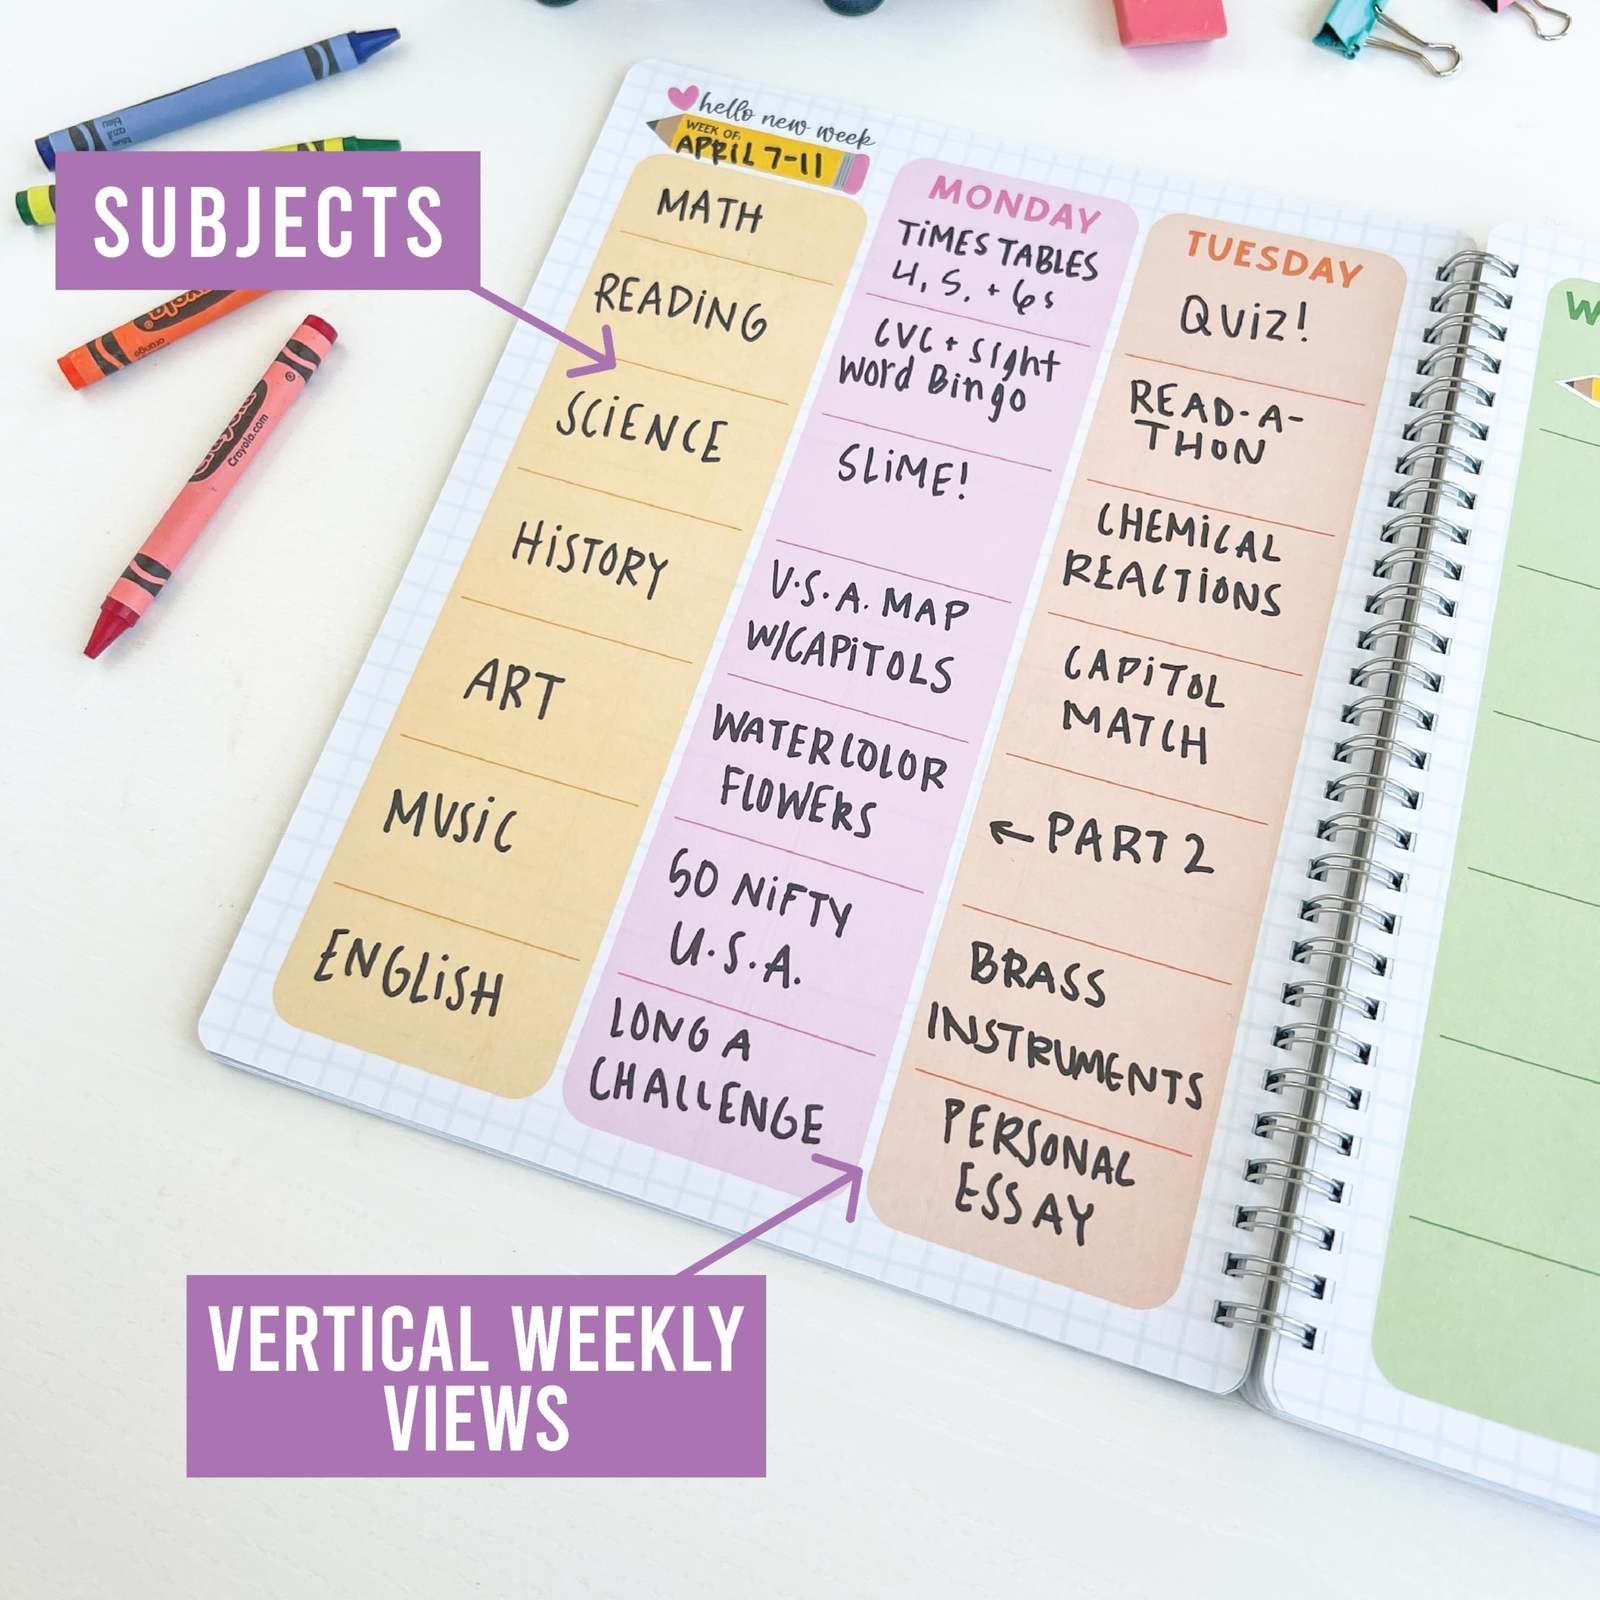 blue
azul
bleu
SUBJECTS
orange
Crayola
Crayola.com
hello new week
WEEK OF:
APRIL 7-11
MATH
READING
SCIENCE
HISTORY
ART
MUSIC
ENGLISH
MONDAY
TIMES TABLES
4, 5, + 6s
CVC + Sight
Word Bingo
SLIME!
U.S.A. MAP
W/CAPITOLS
WATERCOLOR
FLOWERS
50 NIFTY
U.S.A.
LONG A
CHALLENGE
TUESDAY
QUIZ!
READ-A-
THON
CHEMICAL
REACTIONS
CAPITOL
MATCH
← PART 2
BRASS
INSTRUMENTS
PERSONAL
ESSAY
W
VERTICAL WEEKLY
VIEWS